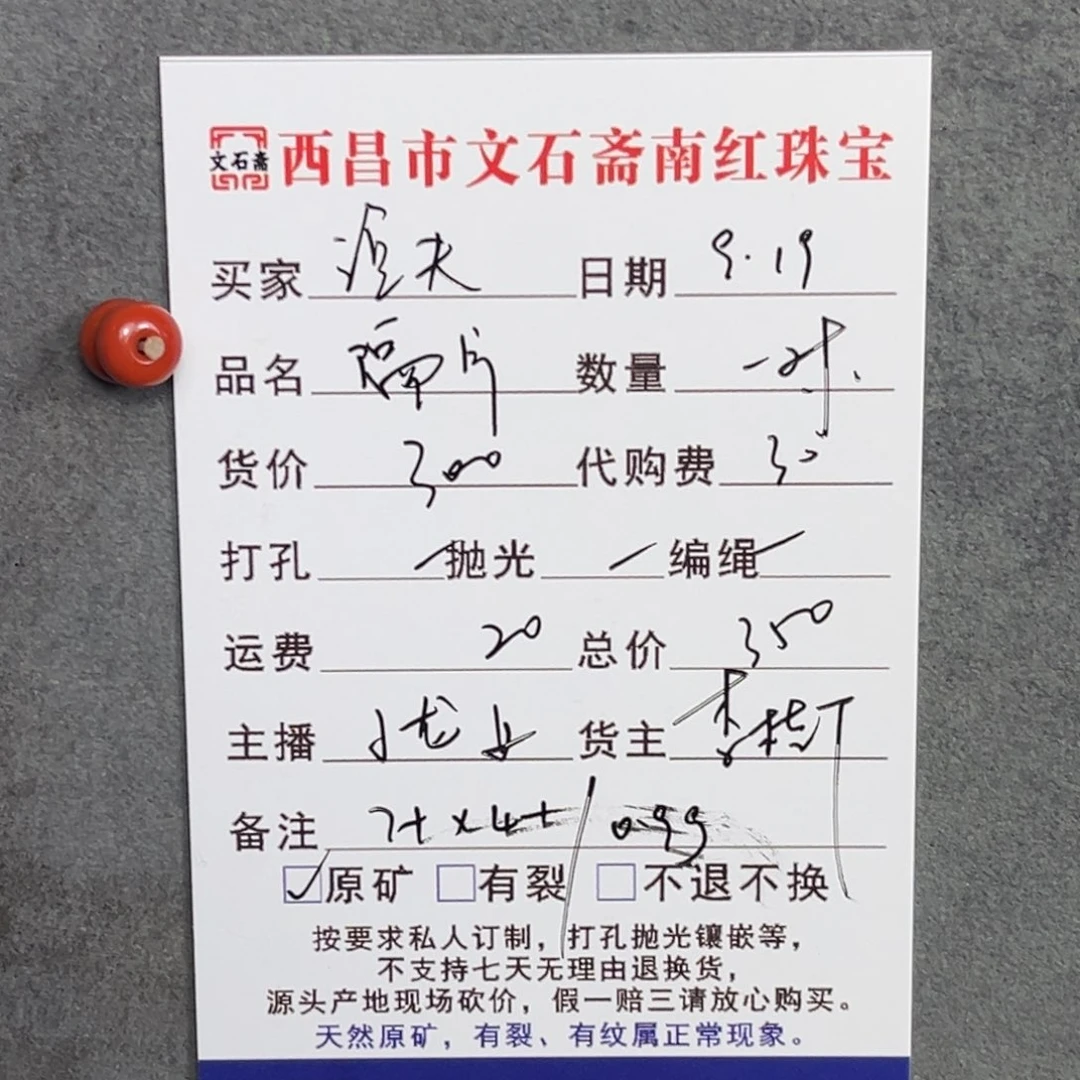 文石斋 西昌市文石斋南红珠宝
买家 渔夫 日期 9.19
品名 数量 一对
货价 300 代购费 30
打孔 抛光 编绳
运费 20 总价 350
主播 货主
备注 7+×4+/0.9g
原矿 有裂 不退不换
按要求私人订制，打孔抛光镶嵌等，
不支持七天无理由退换货，
源头产地现场砍价，假一赔三请放心购买。
天然原矿，有裂、有纹属正常现象。